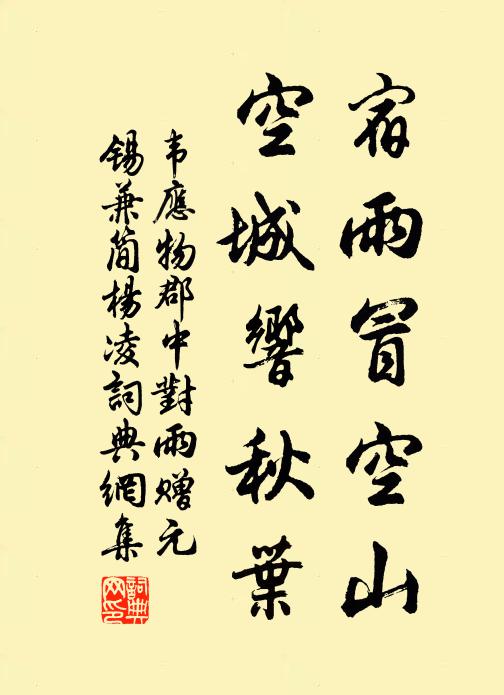 宿雨冒空山
空城響秋葉
韦應物郡中對雨赠元
锡兼简楊凌詞典網集